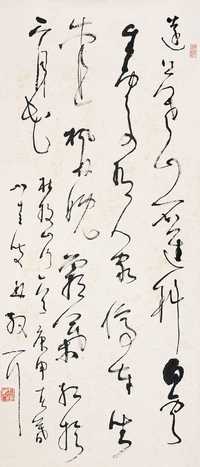 遠上寒山石逕斜白雲
生處有人家停車坐
愛楓林晚霜葉紅於
二月花 杜牧山行 庚申春暮
散耳